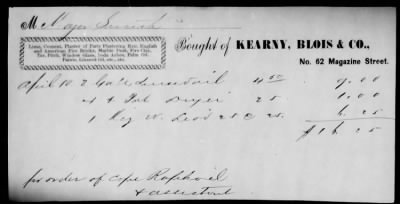 Mr Major Smith
Lime, Cement, Plaster of Paris Plastering Hair, English
and American Fire Bricks, Marble Dust, Fire Clay,
Tar, Pitch, Window Glass, Soda Ashes, Palm Oil,
Paints, Linseed Oil, etc., etc.
Bought of KEARNY, BLOIS & CO.,
No. 62 Magazine Street.
April 10 2 Gals 4 50 9.00
4 Dryer 25 1.00
1 Keg W. Lead 25 @ 25. 6.25
$16.25
pr order of Capt